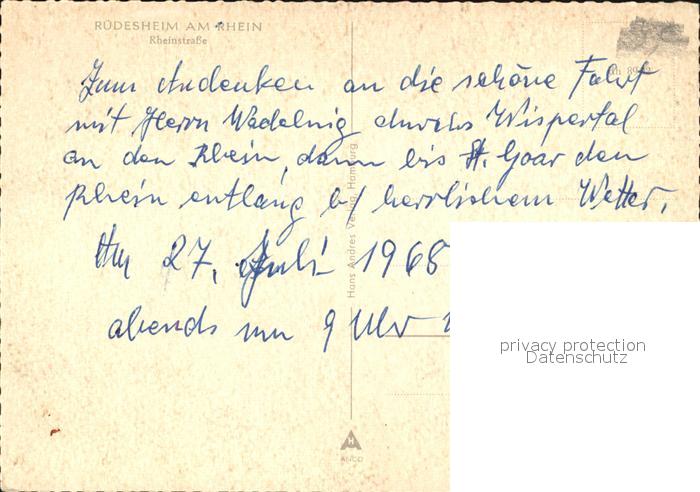 RÜDESHEIM AM RHEIN
Rheinstraße
Zum Andenken an die schöne Fahrt
mit Herrn durchs Wispertal
an den Rhein, dann bis St. Goar den
Rhein entlang b/ herrlichem Wetter.
Am 27. Juli 1968
abends um 9 Uhr
Hans Andres Verlag, Hamburg
H
ANCO
privacy protection
Datenschutz